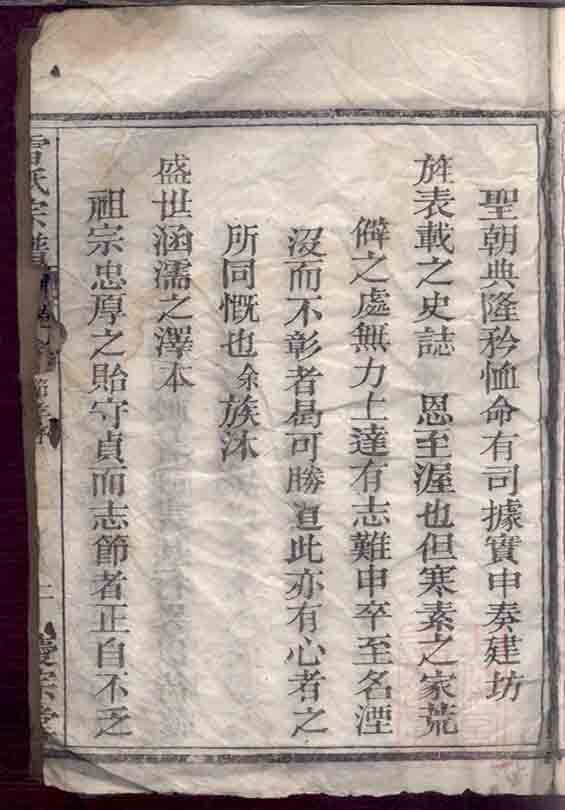 聖朝典隆矜恤命有司據實申奏建坊
旌表載之史誌 恩至渥也但寒素之家荒
僻之處無力上達有志難申卒至名湮
沒而不彰者曷可勝道此亦有心者之
所同慨也余族沐
盛世涵濡之澤本
祖宗忠厚之貽守貞而志節者正自不乏
氏宗譜